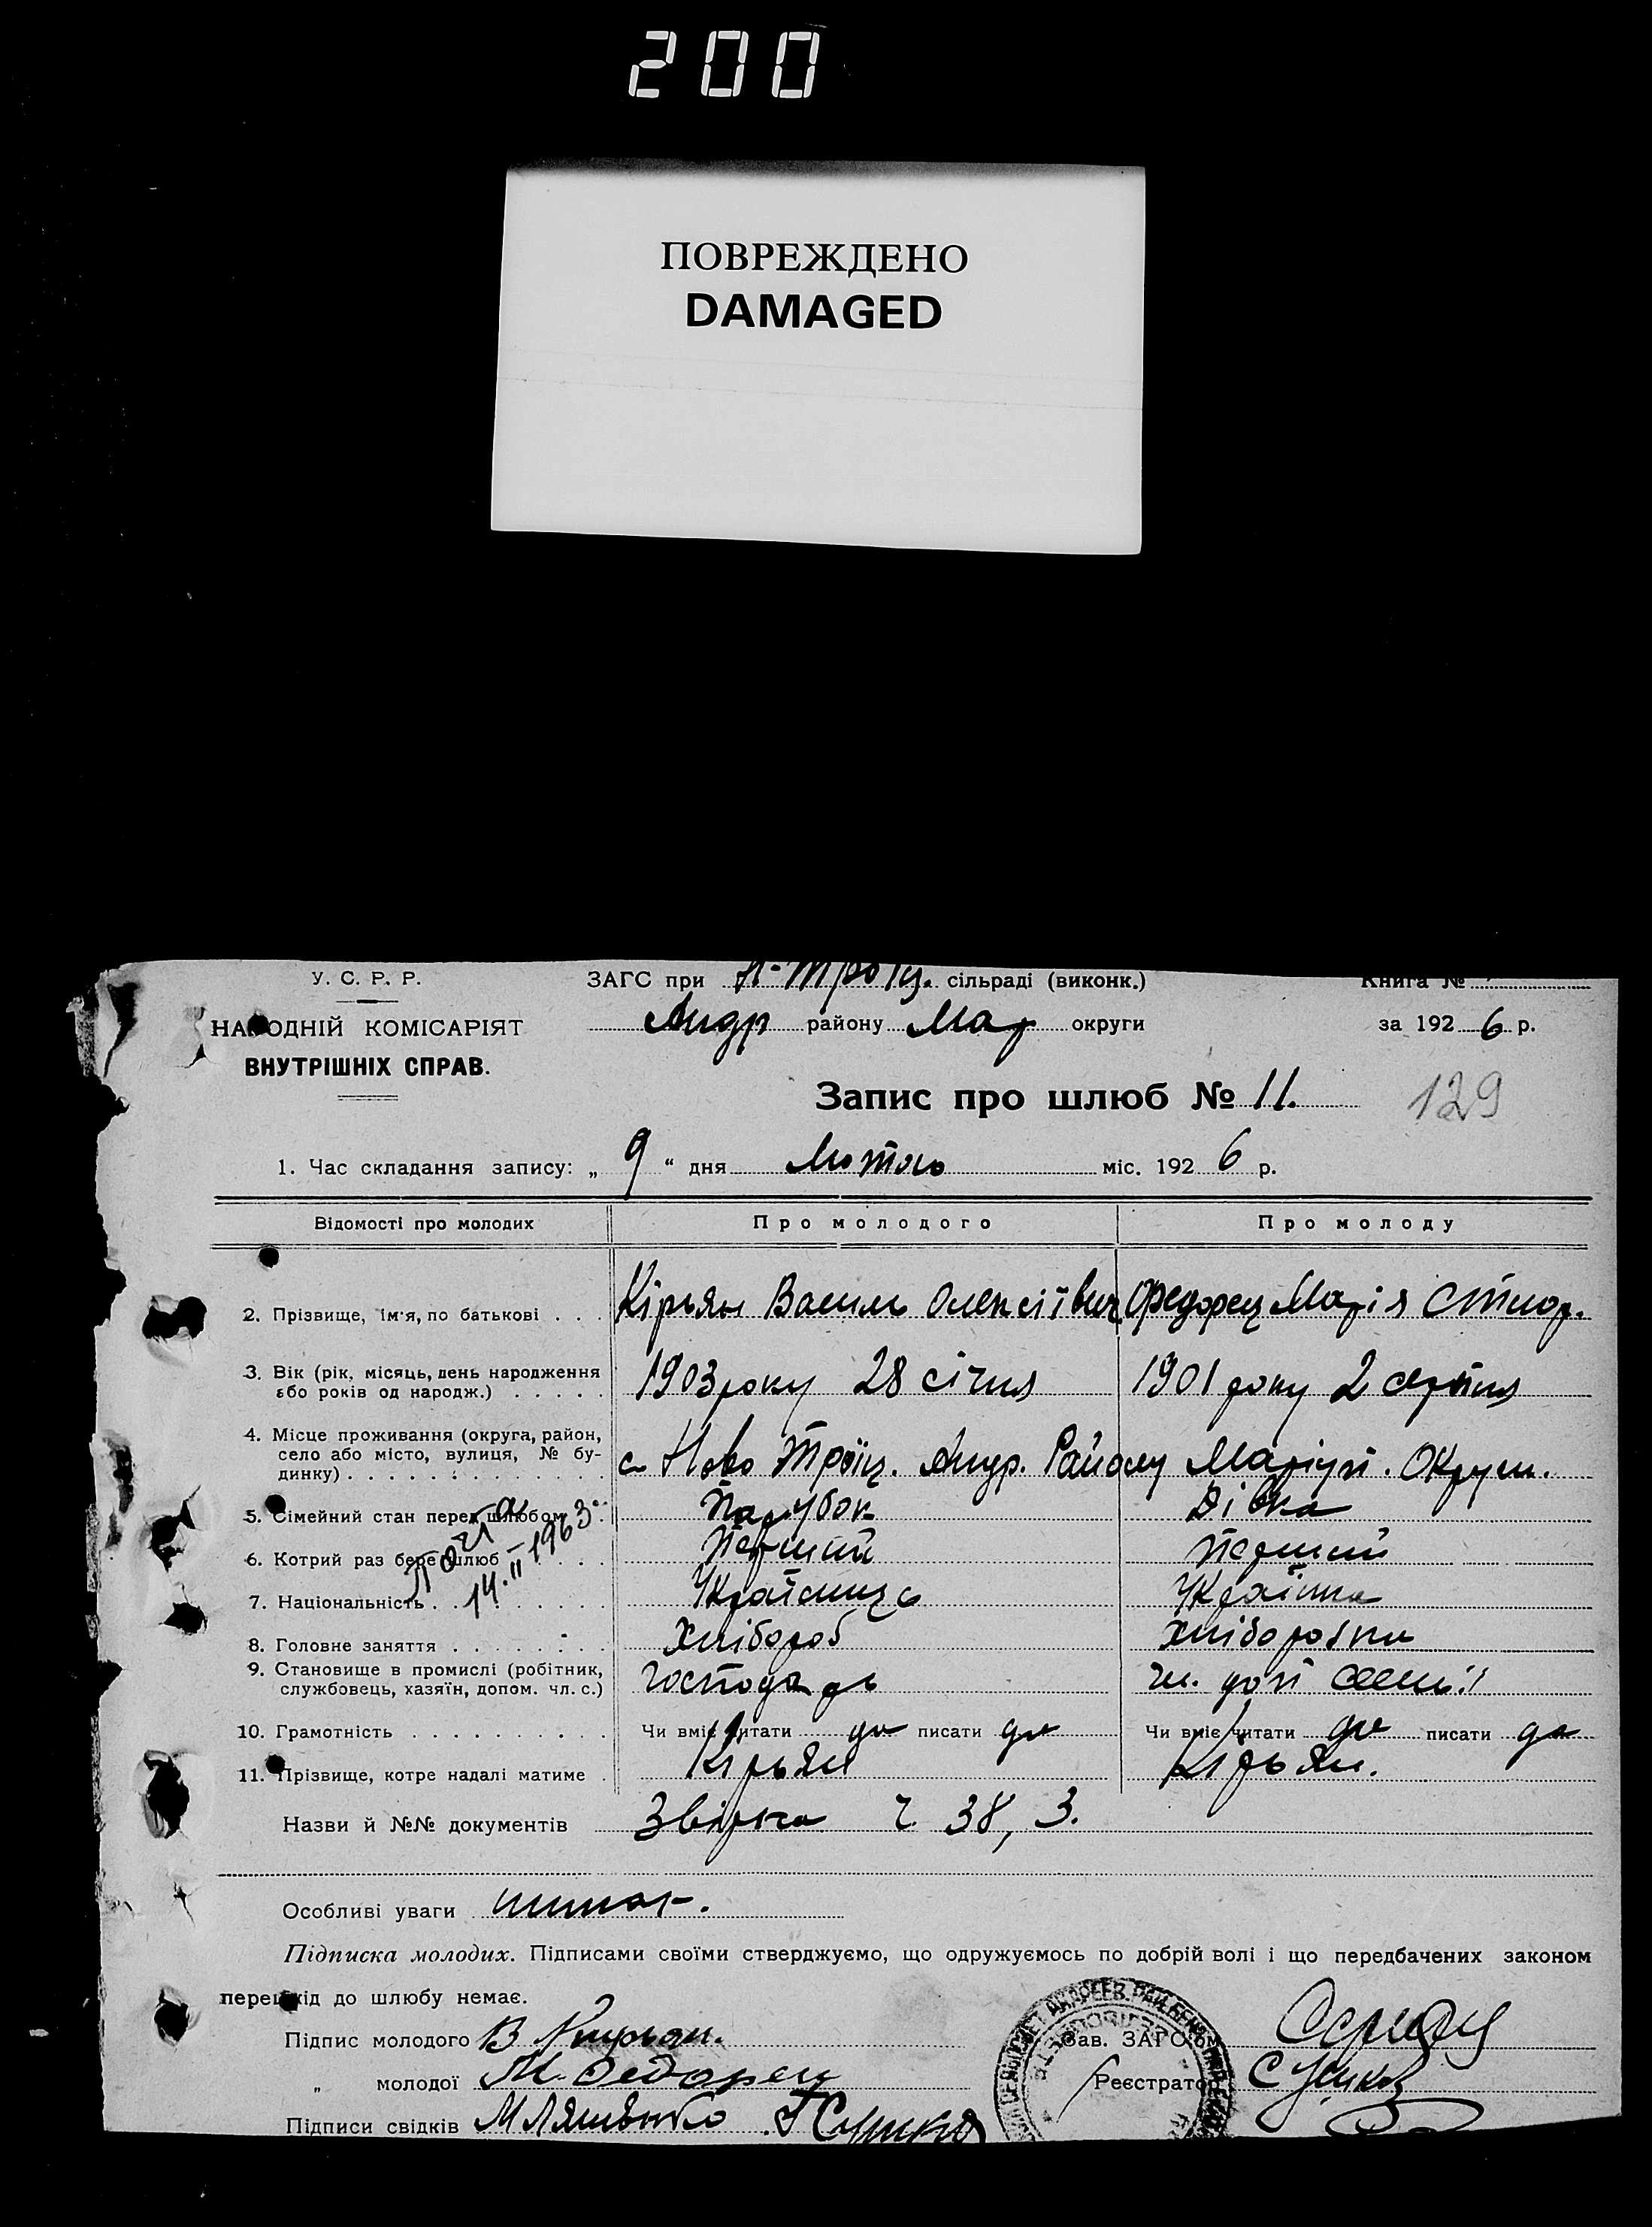 200
ПОВРЕЖДЕНО
DAMAGED
У. С. Р. Р. ЗАГС при Н-Троїц. сільраді (виконк.) Книга №
НАРОДНІЙ КОМІСАРІЯТ Андр району Мар округи за 192 6 р.
ВНУТРІШНІХ СПРАВ.
Запис про шлюб № 11. 129
1. Час складання запису: „ 9 “ дня Лютого міс. 192 6 р.
Відомості про молодих Про молодого Про молоду
2. Прізвище, ім'я, по батькові . . . Кірьян Василь Олексіївич Федорец Марія
3. Вік (рік, місяць, день народження
або років од народж.) . . . . . 1903 року 28 січня 1901 року 2 серпня
4. Місце проживання (округа, район,
село або місто, вулиця, № бу-
динку) . . . . . . . . . . . . с Ново Троїц. Андр. Району Маріуп. Округи.
5. Сімейний стан перед шлюбом . Парубок Дівка
6. Котрий раз бере шлюб . . . . Перший Перший
14.II 1963
7. Національність . . . . . . . . Українець Українка
8. Головне заняття . . . . . . . Хлібороб Хліборобка
9. Становище в промислі (робітник,
службовець, хазяїн, допом. чл. с.) Господарь чл. доп семьї
10. Грамотність . . . . . . . . . . Чи вміє читати да писати да Чи вміє читати да писати да
11. Прізвище, котре надалі матиме . Кірьян Кірьян.
Назви й №№ документів Звірка ч. 38, 3.
Особливі уваги
Підписка молодих. Підписами своїми стверджуємо, що одружуємось по добрій волі і що передбачених законом
перешкід до шлюбу немає.
Підпис молодого В Кирьян. Зав. ЗАГС'ом
„ молодої М. Федорец Реєстратор
Підписи свідків М Ляшенко